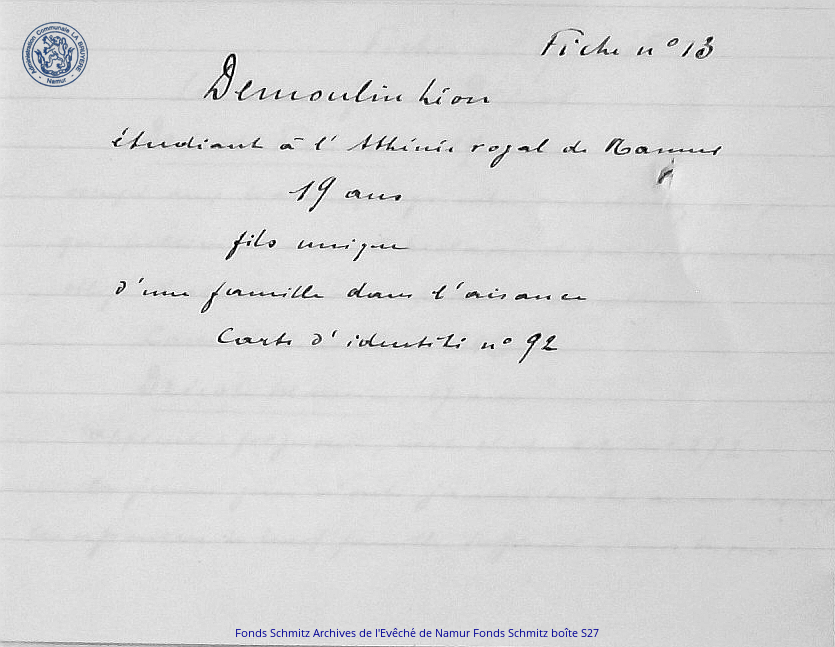 Administration Communale LA BRUYERE
- Namur -
Fiche n° 13
Demoulin Léon
étudiant à l'Athénée royal de Namur
19 ans
fils unique
d'une famille dans l'aisance
Carte d'identité n° 92
Fonds Schmitz Archives de l'Evêché de Namur Fonds Schmitz boîte S27